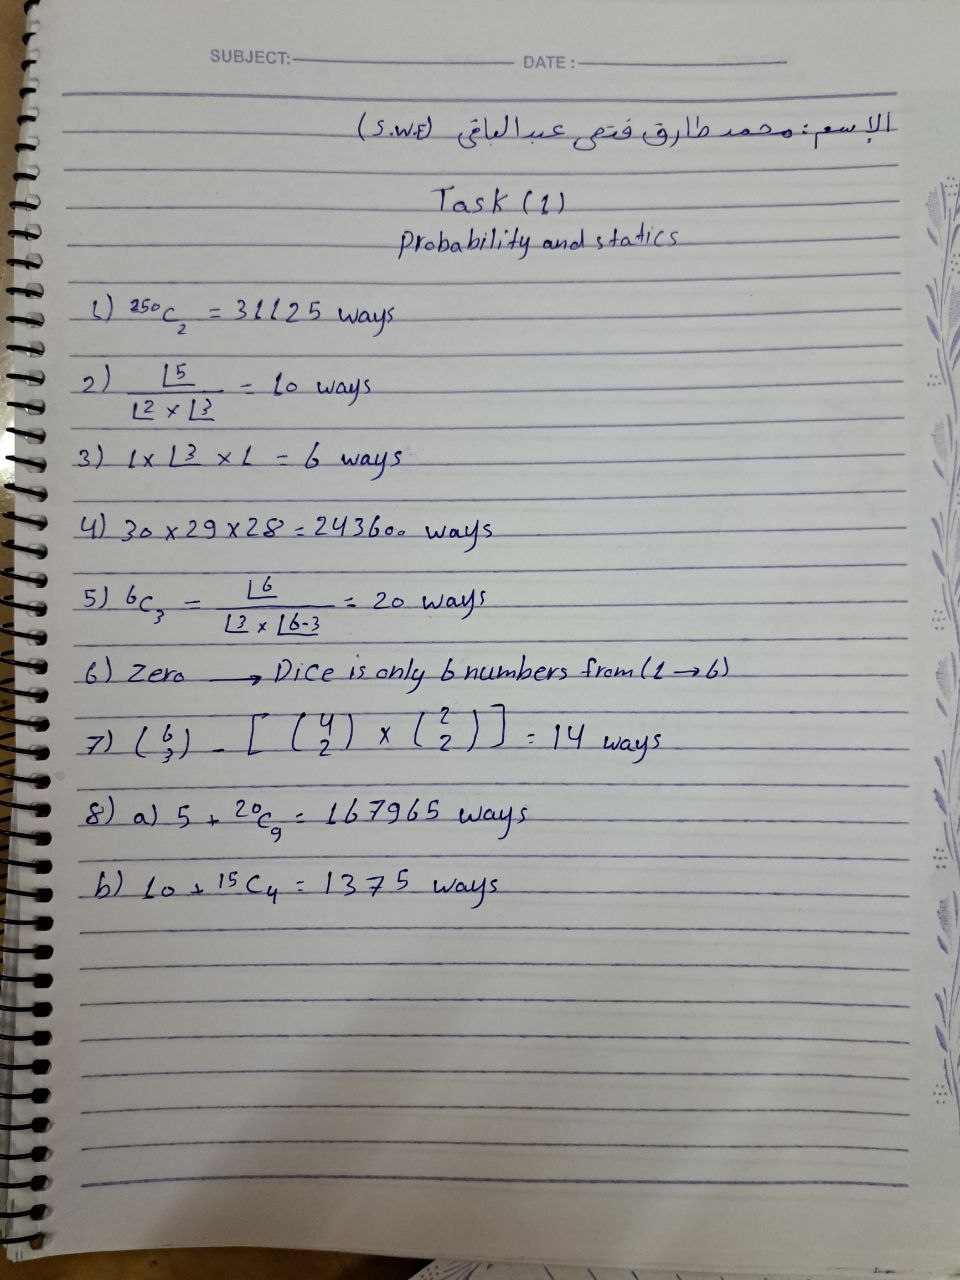 SUBJECT: DATE :
الإسم : محمد طارق فتحى عبدالباقى (S.W.E)
Task (1)
Probability and statics
1) ²⁵⁰C₂ = 31125 ways
2) ⌊5 / ⌊2 × ⌊3 = 10 ways
3) 1 × ⌊3 × 1 = 6 ways
4) 30 × 29 × 28 = 243600 ways
5) ⁶C₃ = ⌊6 / ⌊3 × ⌊6-3 = 20 ways
6) Zero → Dice is only 6 numbers from (1 → 6)
7) (6 3) - [ (4 2) × (2 2) ] = 14 ways
8) a) 5 + ²⁰C₉ = 167965 ways
b) 10 + ¹⁵C₄ = 1375 ways